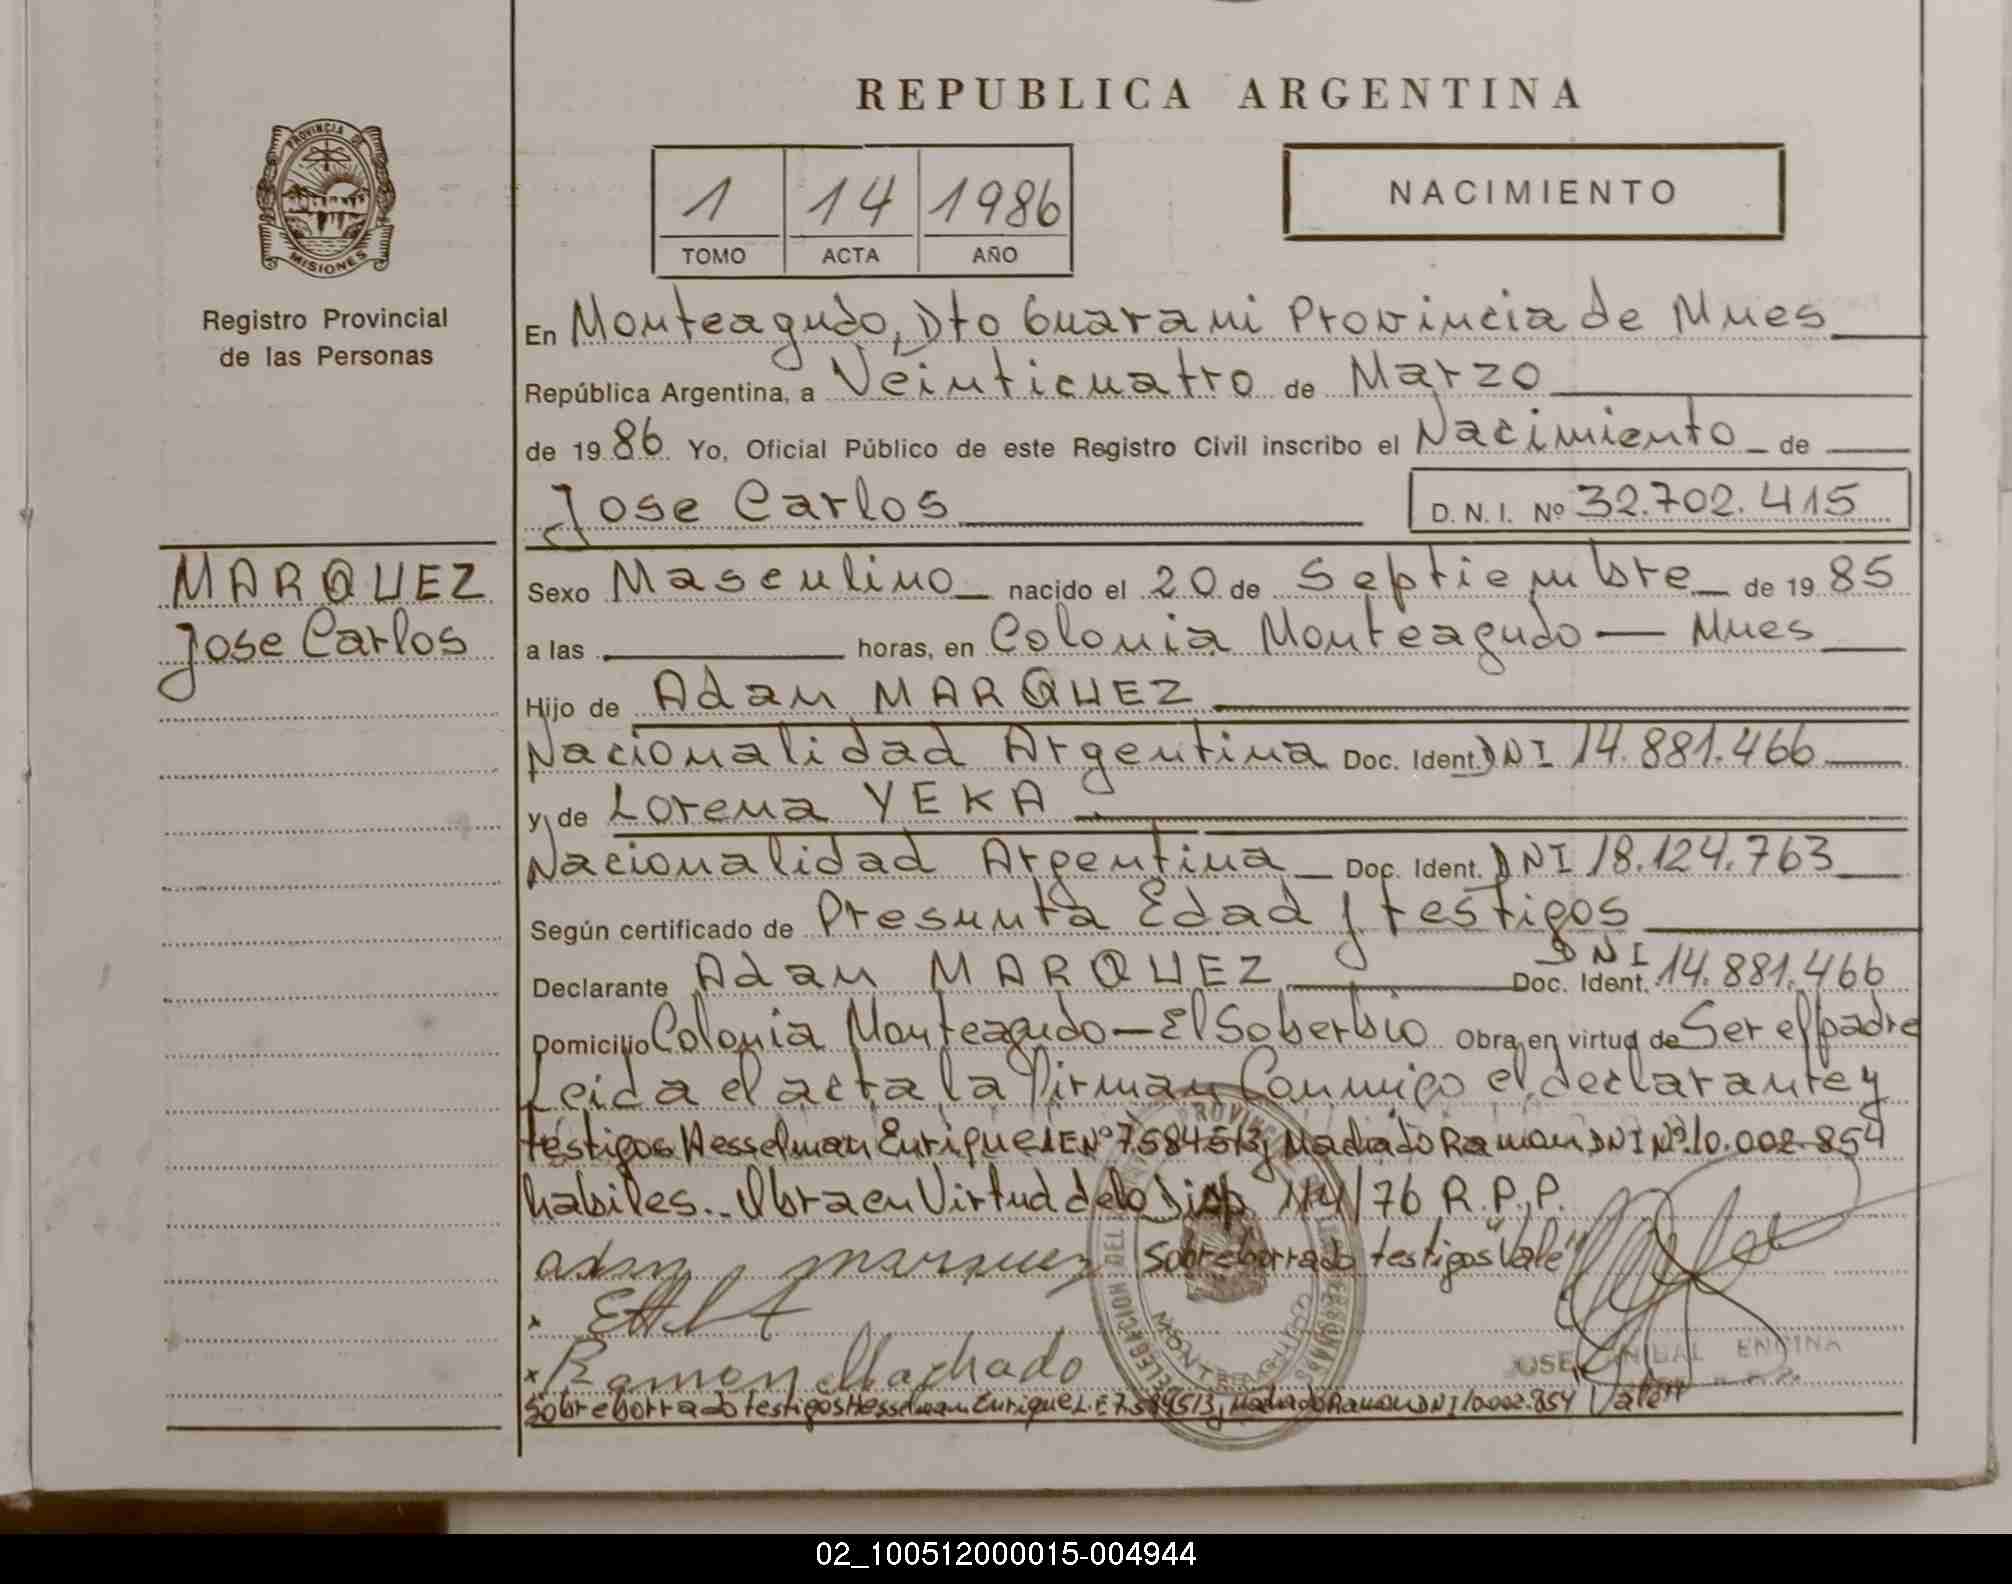 REPUBLICA ARGENTINA
PROVINCIA DE
MISIONES
Registro Provincial
de las Personas
1 14 1986
TOMO ACTA AÑO
NACIMIENTO
En Monteagudo, Dto Guarani Provincia de Mnes
República Argentina, a Veinticuatro de Marzo
de 1986. Yo, Oficial Público de este Registro Civil inscribo el Nacimiento de
Jose Carlos
D.N.I. Nº 32.702.415
MARQUEZ
Jose Carlos
Sexo Masculino nacido el 20 de Septiembre de 1985
a las horas, en Colonia Monteagudo — Mnes
Hijo de Adan MARQUEZ
Nacionalidad Argentina Doc. Ident. DNI 14.881.466
y de Lorena YEKA
Nacionalidad Argentina Doc. Ident. DNI 18.124.763
Según certificado de Presunta Edad y testigos
Declarante Adan MARQUEZ Doc. Ident. DNI 14.881.466
Domicilio Colonia Monteagudo — El Soberbio Obra en virtud de Ser el padre
Leida el acta la firman Conmigo el declarante y
testigos Hesselman Enrique LE Nº 7.584513 y Machado Ramon DNI Nº 10.002.854
habiles.. Obra en Virtud de lo Disp. 114/76 R.P.P.
adan marquez Sobreborrado testigos "Vale"
x
x Ramon Machado
JOSE ANIBAL ENCINA
DELEGACION DEL
MONTEAGUDO
Sobreborrado testigos Hesselman Enrique L.E 7.584513 y Machado Ramon DNI 10.002.854 Vale"
02_100512000015-004944